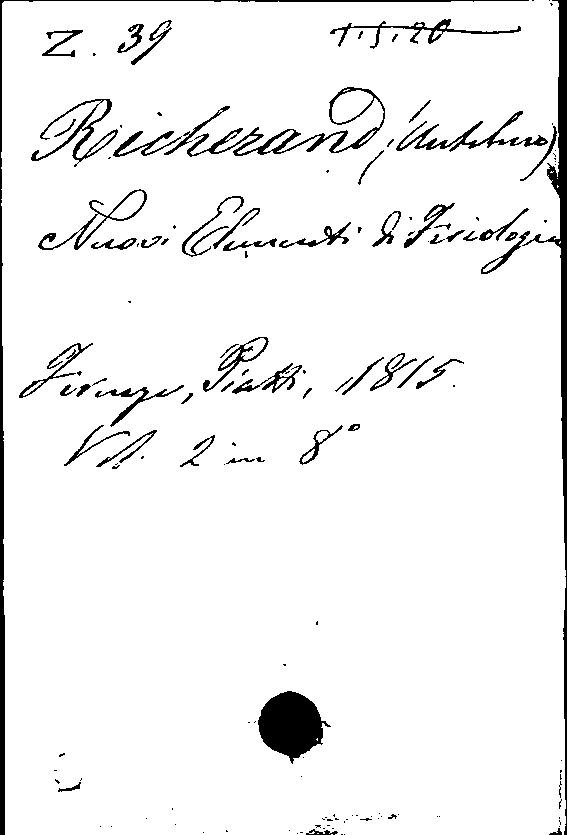 Z. 39 1.5.20
Richerand, (Antelmo)
Nuovi Elementi di Fisiologia
Firenze, Piatti, 1815.
Vol. 2 in 8°